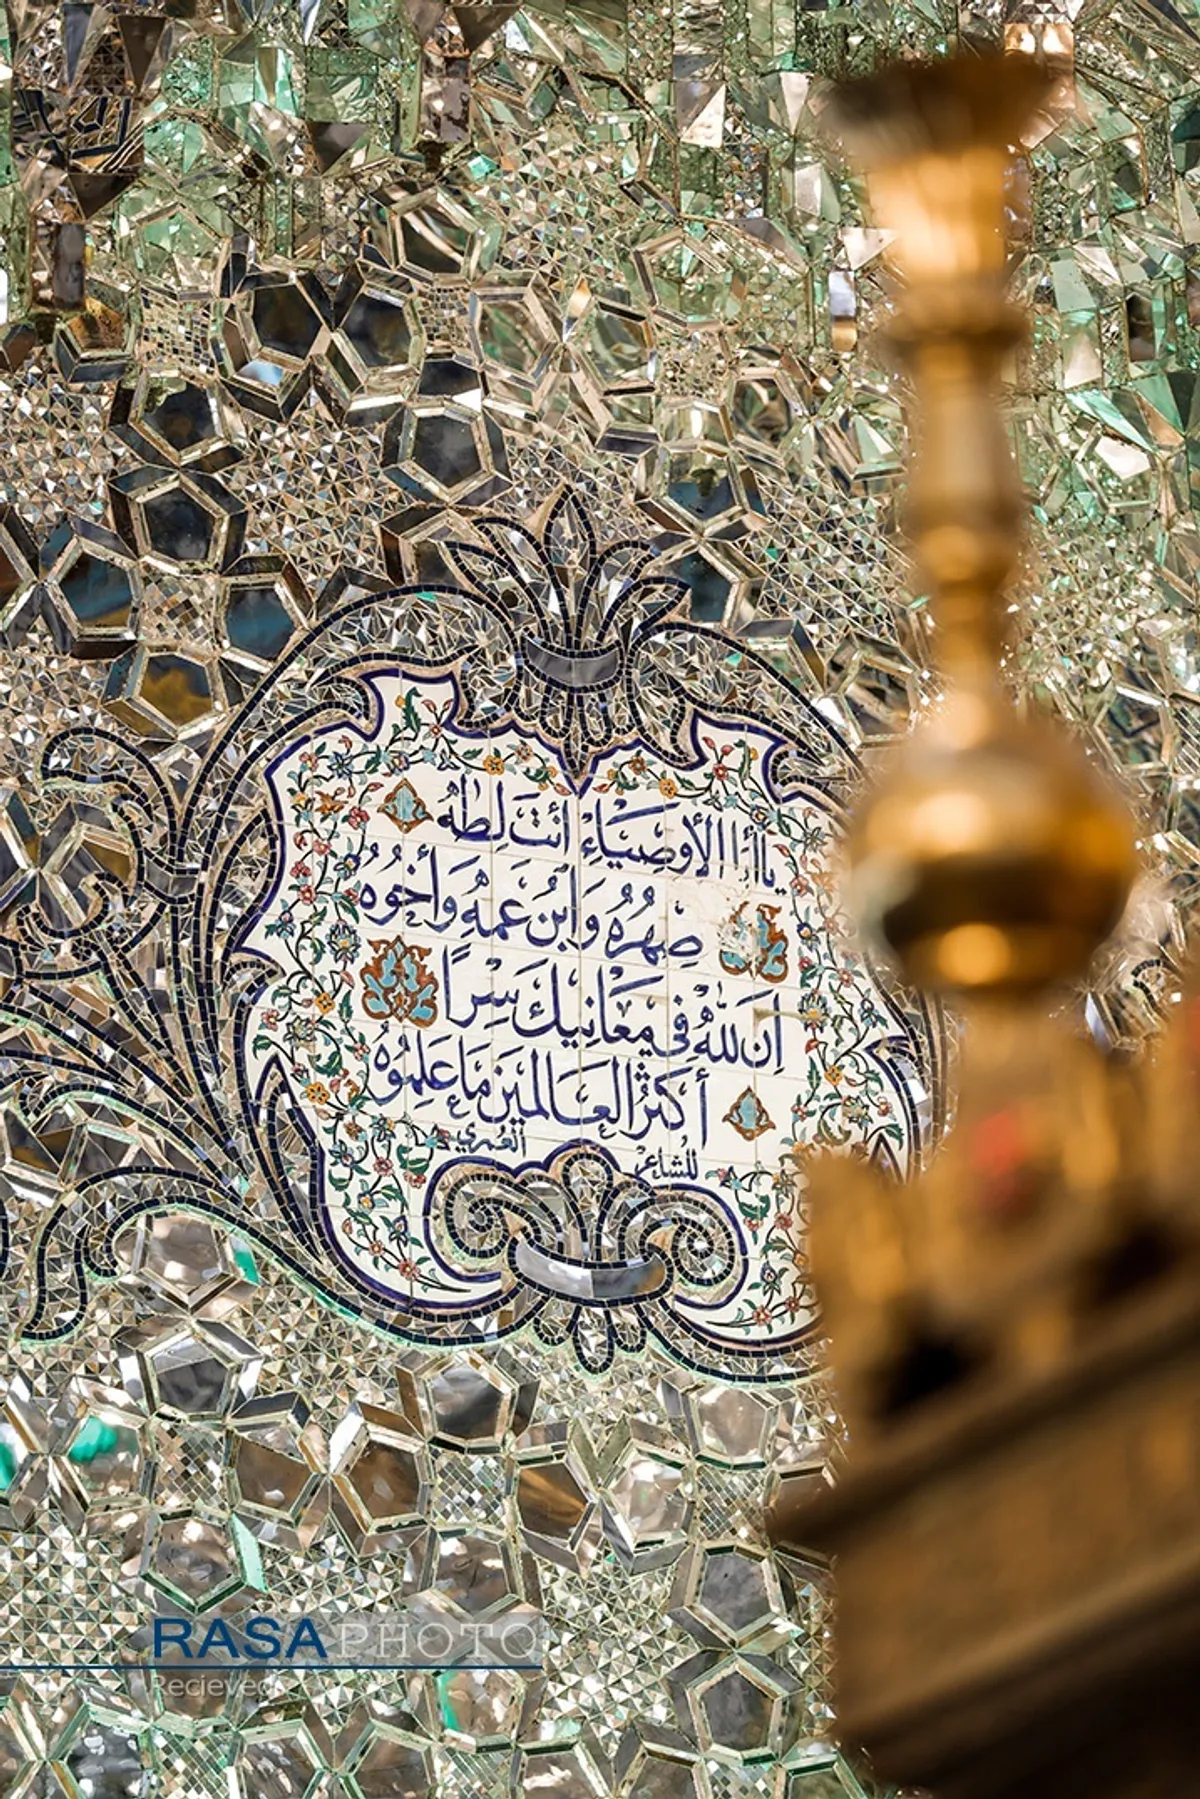 يا أبا الأوصياء أنت لطه
صهره وابن عمه وأخوه
إن لله في معانيك سرا
أكثر العالمين ما علموه
للشاعر العمري
RASA PHOTO
Recieved